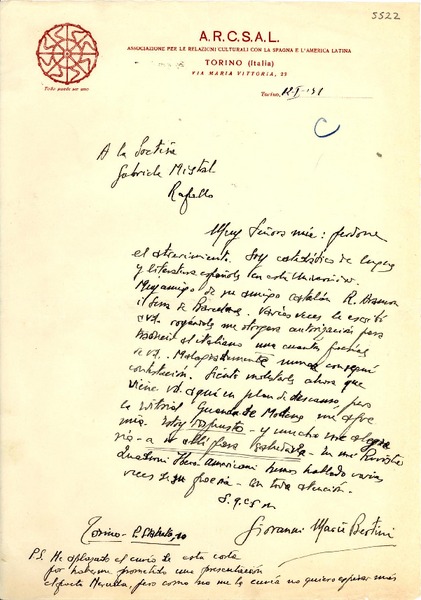 5522
A.R.C.S.A.L.
ASSOCIAZIONE PER LE RELAZIONI CULTURALI CON LA SPAGNA E L'AMERICA LATINA
TORINO (Italia)
VIA MARIA VITTORIA, 23
Todo puede ser uno
Torino,
C
A la
Gabriela Mistral
Rapallo
Muy Señora mia: perdone
el atrevimiento. Soy catedrático de lengua
y literatura española en esta Universidad.
Muy amigo de su amigo catalán R. Aramon
i Serra de Barcelona. Varias veces le escribí
a Vd. rogándole me otorgara autorización para
al italiano una cuantas poesías
de Vd. Malogradamente nunca conseguí
contestación. Siento molestarle ahora que
viene Vd. aquí en plan de descanso, pero
la Editorial Guanda de Modena me
Estoy dispuesto - y mucho me alegra
ría - a ir allí para saludarla - En mi Revista
Quaderni Ibero-Americani hemos hablado varias
veces de su poesía - Con toda atención.
Giovanni Maria Bertini
Torino -
P.S. He aplazado el envío de esta carta
por haberme prometido una presentación
el poeta Neruda, pero como no me la envía no quiero esperar más